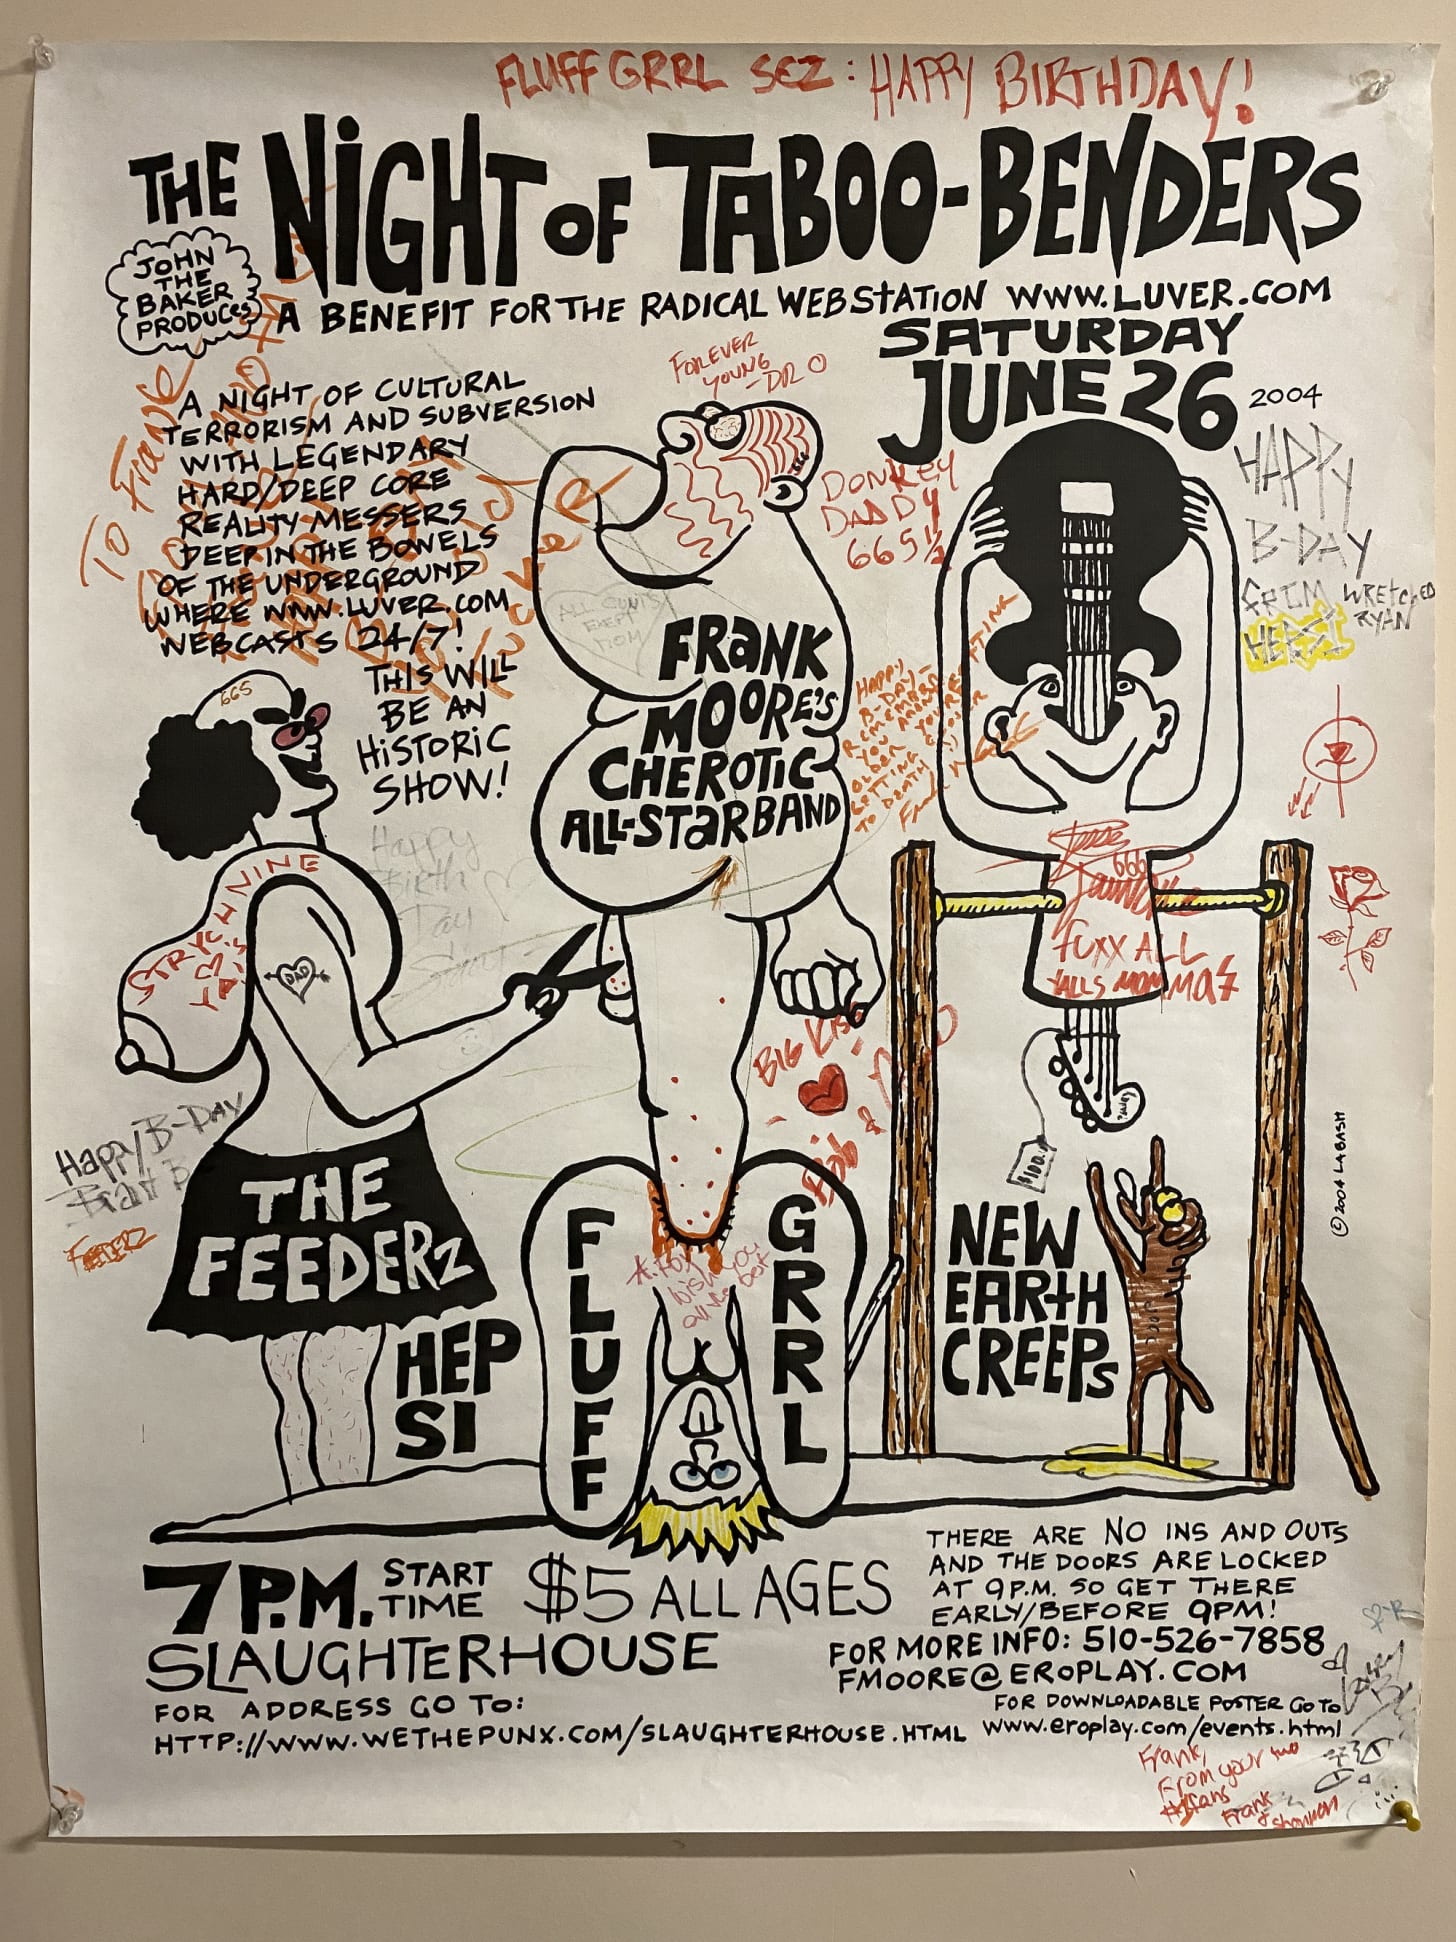 FLUFF GRRL SEZ: HAPPY BIRTHDAY!
THE NIGHT OF TABOO-BENDERS
JOHN
THE
BAKER
PRODUCES
A BENEFIT FOR THE RADICAL WEBSTATION WWW.LUVER.COM
SATURDAY
JUNE 26 2004
A NIGHT OF CULTURAL
TERRORISM AND SUBVERSION
WITH LEGENDARY
HARD/DEEP CORE
REALITY MESSERS
DEEP IN THE BOWELS
OF THE UNDERGROUND
WHERE WWW.LUVER.COM
WEBCASTS 24/7!
THIS WILL
BE AN
HISTORIC
SHOW!
To Frank
FOREVER
YOUNG
-DR O
DONKEY
DADDY
665½
HAPPY
B-DAY
FROM WRETCHED
RYAN
HEPSI
ALL CUNTS
EXEPT
TOM
FRANK
MOORE'S
CHEROTIC
ALL-STAR BAND
HAPPY
B-DAY
REMEMBER
YOU
OLDER YOU'RE
GETTING CLOSER
TO DEATH
665
STRYCHNINE
DAD
Happy
Birth
Day
666
FUXX ALL
YALLS MOMMAZ
BIG KISS
&
$100.
Happy B-Day
FEEDERZ
THE
FEEDERZ
HEP
SI
FLUFF
GRRL
wish you
all the best
NEW
EARTH
CREEPS
© 2004 LABASH
7 P.M. START
TIME
$5 ALL AGES
SLAUGHTERHOUSE
FOR ADDRESS GO TO:
HTTP://WWW.WETHEPUNX.COM/SLAUGHTERHOUSE.HTML
THERE ARE NO INS AND OUTS
AND THE DOORS ARE LOCKED
AT 9P.M. SO GET THERE
EARLY/BEFORE 9PM!
FOR MORE INFO: 510-526-7858
FMOORE@EROPLAY.COM
FOR DOWNLOADABLE POSTER GO TO
WWW.eroplay.com/events.html
Frank,
From your two
#1 fans
Frank
& Shannon